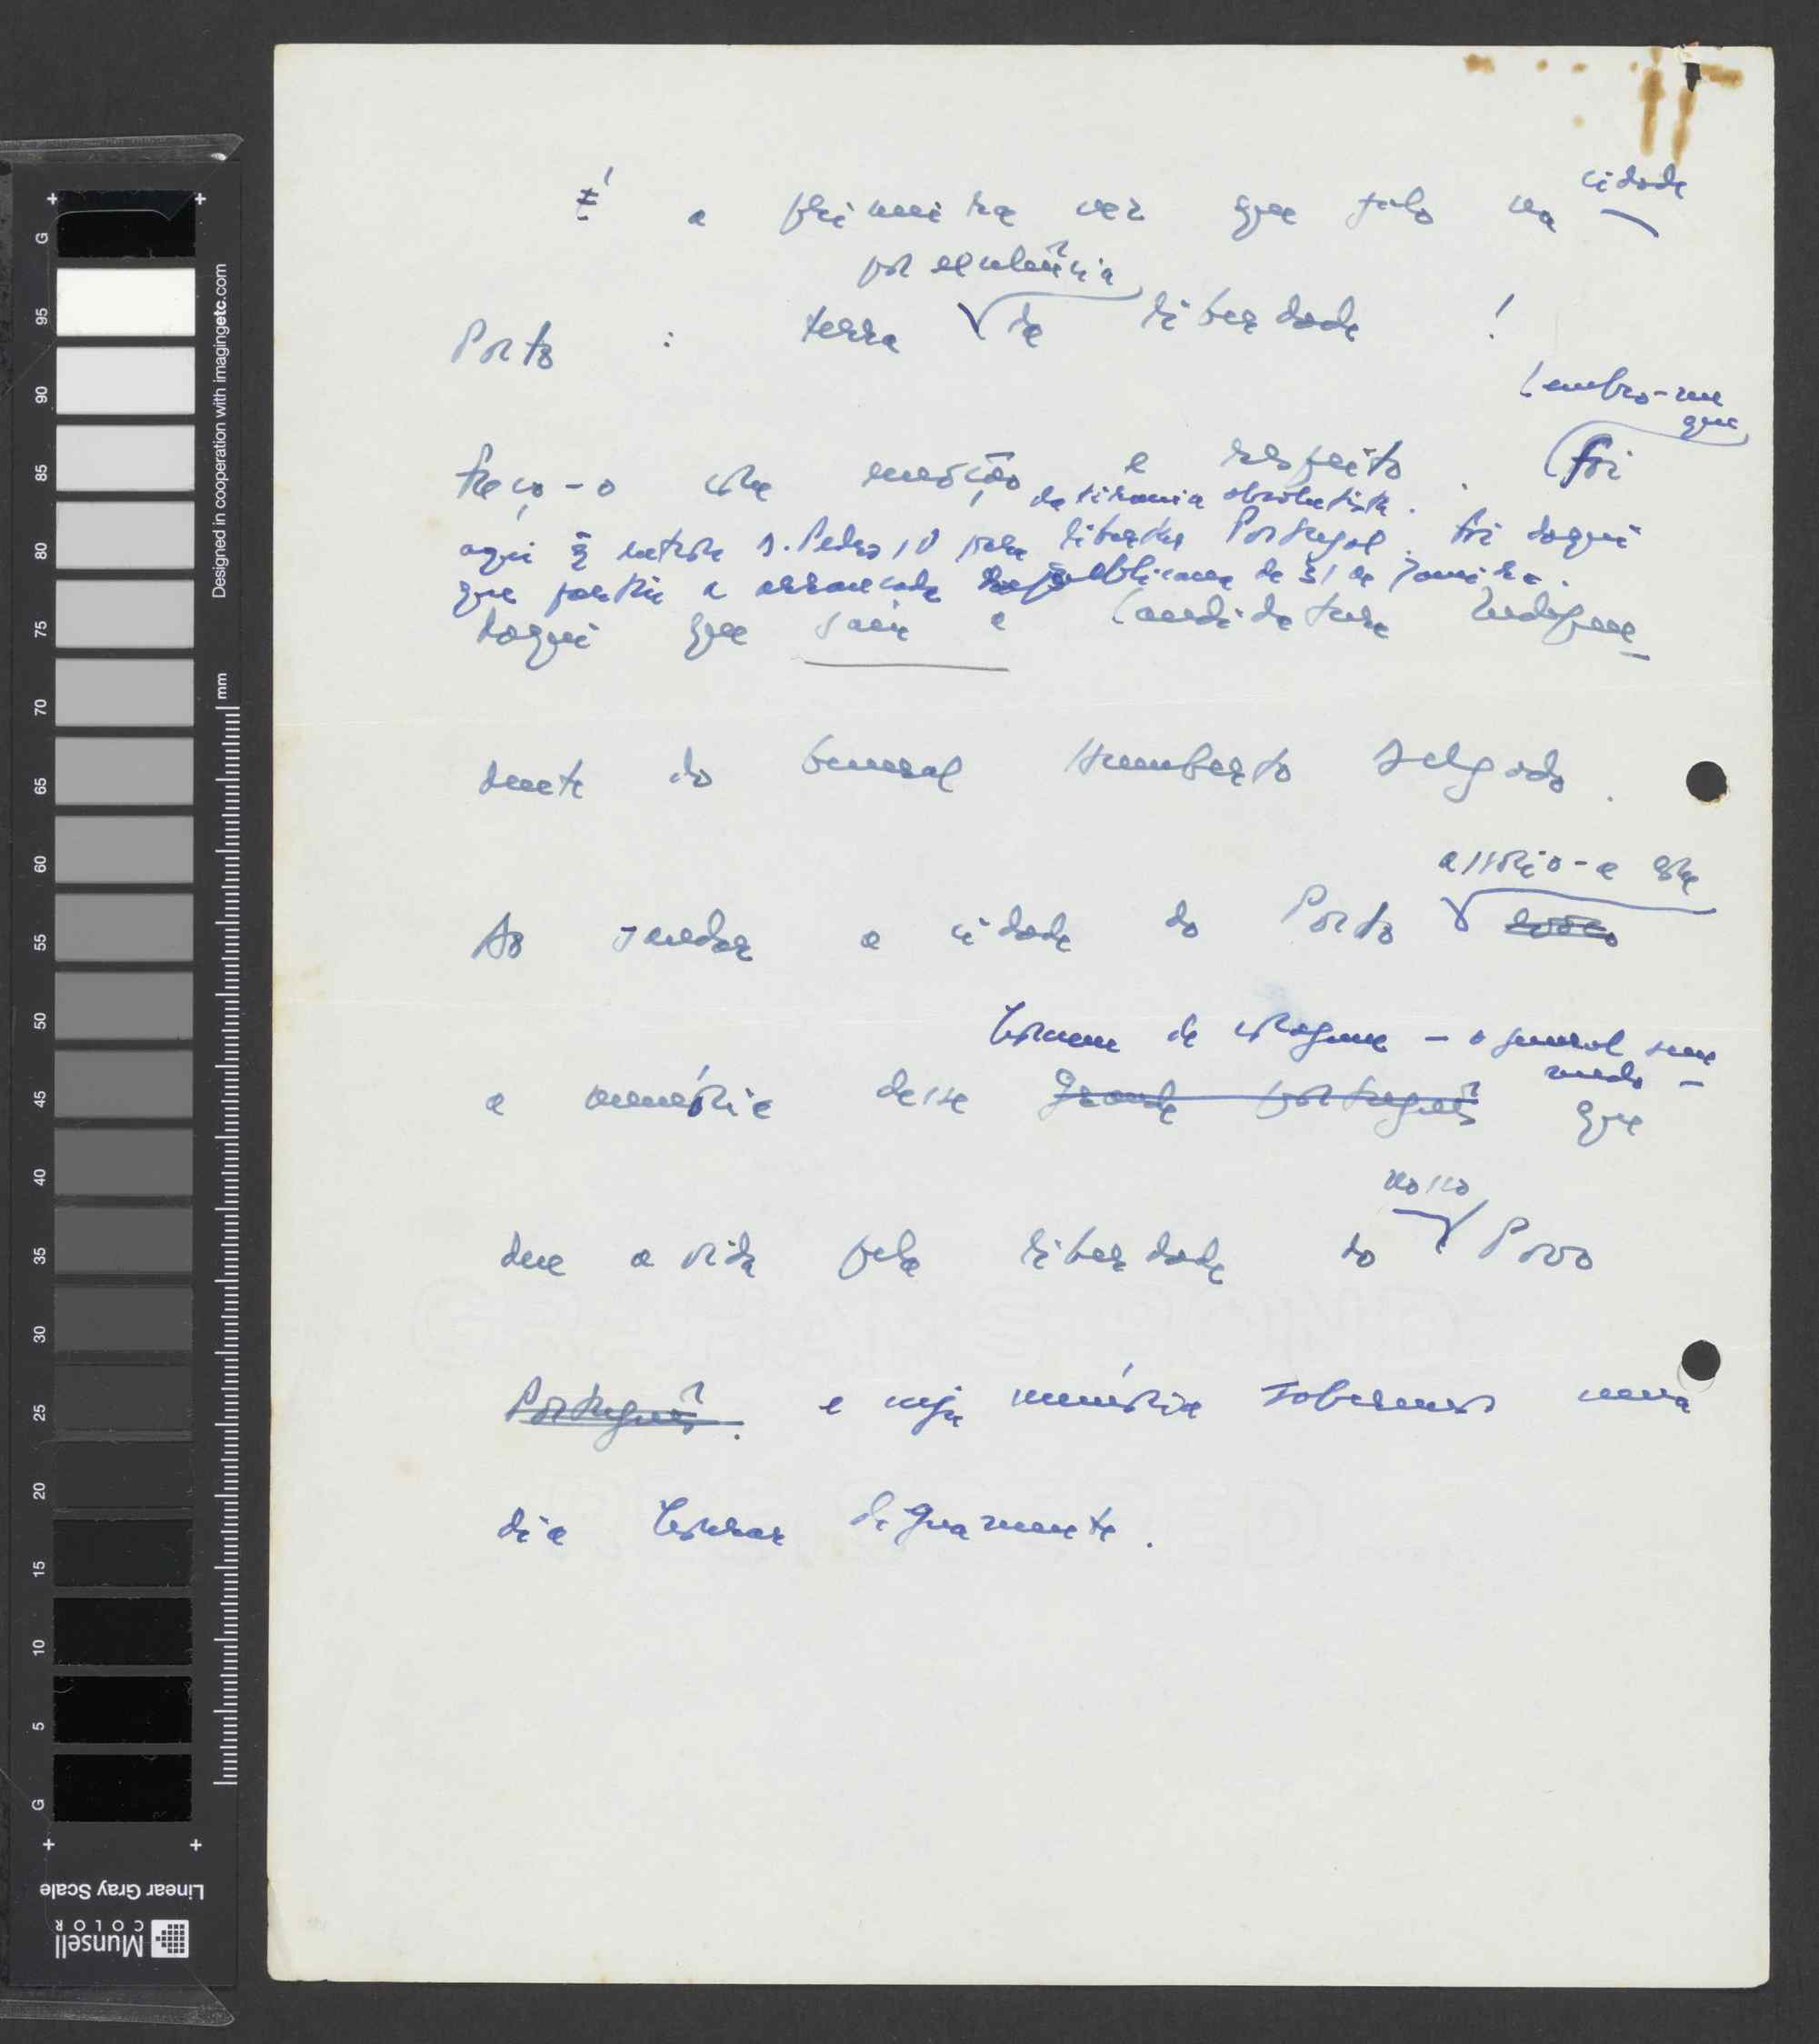 É a primeira vez que falo na cidade
por excelência
Porto : terra de liberdade !
Lembro-me
que
Faço-o com emoção e respeito . Foi
da tirania absolutista .
aqui q entrou D. Pedro IV para libertar Portugal. Foi daqui
que partiu a arrancada republicana de 31 de Janeiro.
daqui que saiu a Candidatura Indepen
dente do General Humberto Delgado .
associo-a com
Ao saudar a cidade do Porto
homem de coragem - o general sem
medo -
a memória desse grande português que
nosso
deu a vida pela liberdade do Povo
Português . e cuja memória saberemos um
dia honrar dignamente .
G 95 90 85 80 75 70 65 60 55 50 45 40 35 30 25 20 15 10 5 G
mm
Designed in cooperation with imagingetc.com
Linear Gray Scale
Munsell
COLOR